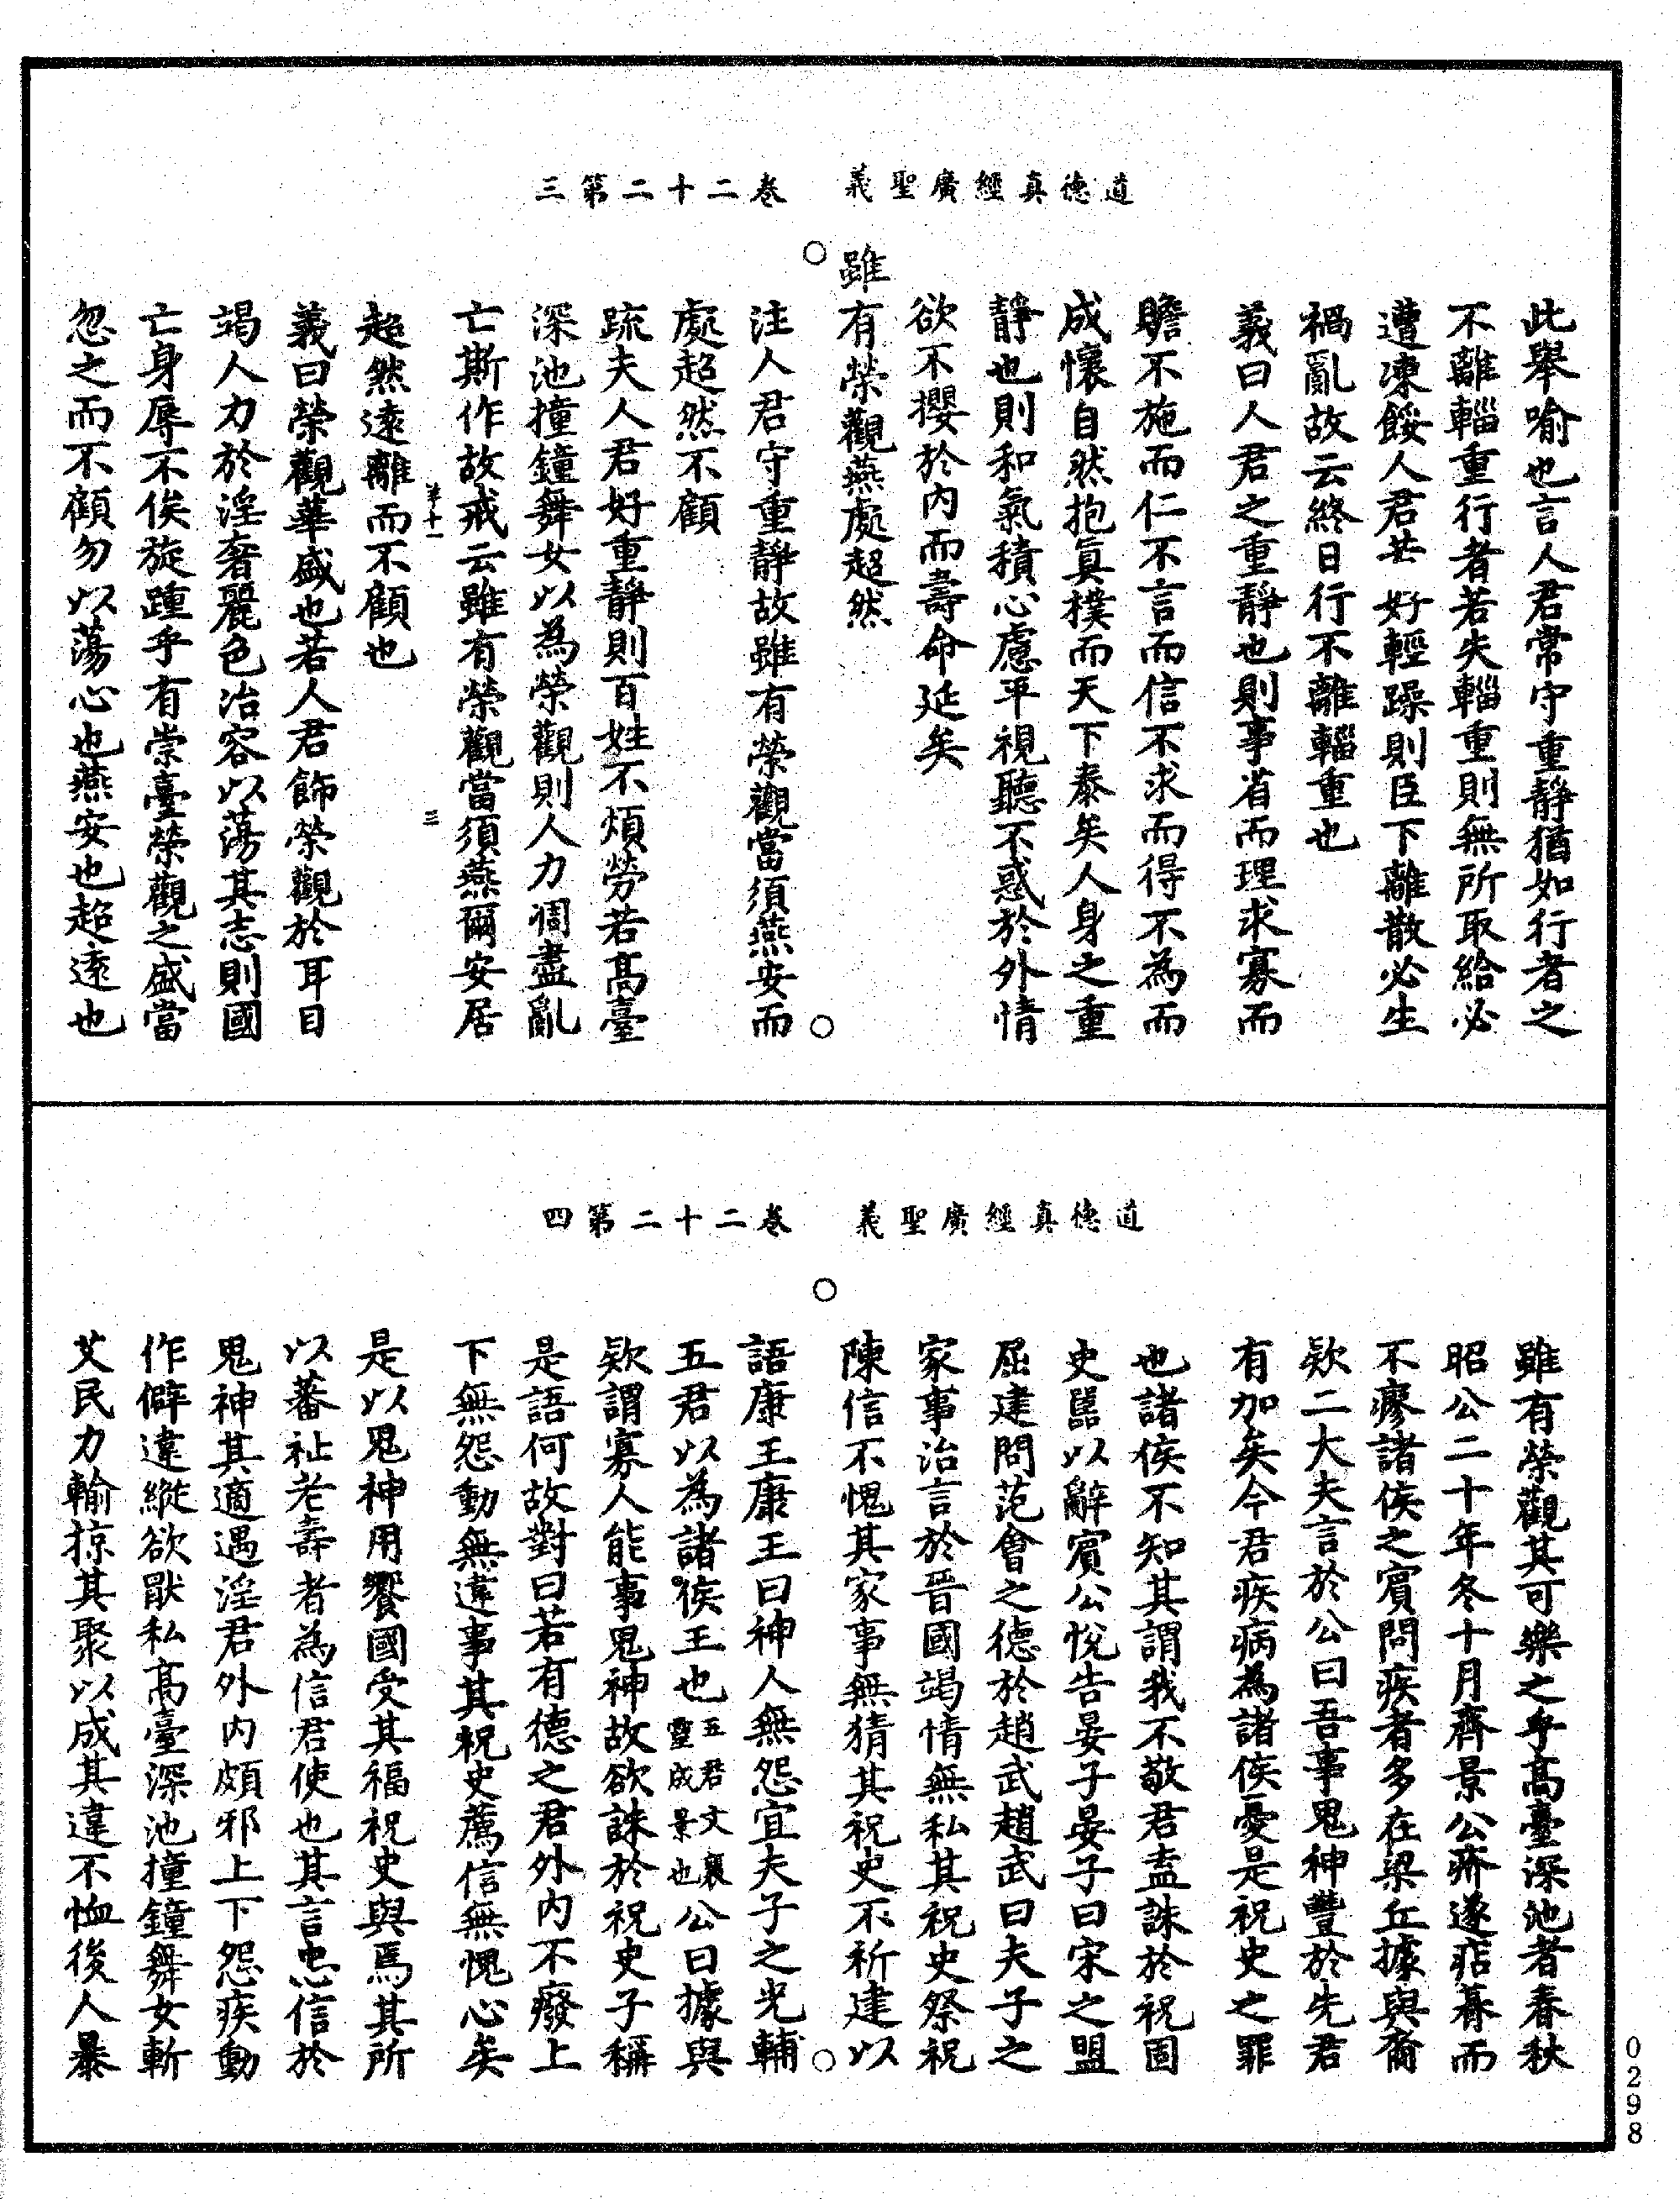 道德真經廣聖義　卷二十二第三
此舉喻也言人君常守重靜猶如行者之
不離輜重行者若失輜重則無所取給必
遭凍餒人君若好輕躁則臣下離散必生
禍亂故云終日行不離輜重也
義曰人君之重靜也則事省而理求寡而
贍不施而仁不言而信不求而得不為而
成懷自然抱真樸而天下泰矣人身之重
靜也則和氣積心慮平視聽不惑於外情
欲不攖於內而壽命延矣
雖有榮觀燕處超然
注人君守重靜故雖有榮觀當須燕安而
處超然不顧
疏夫人君好重靜則百姓不煩勞若高臺
深池撞鐘舞女以為榮觀則人力凋盡亂
亡斯作故戒云雖有榮觀當須燕爾安居
羊十一　三
超然遠離而不顧也
義曰榮觀華盛也若人君飾榮觀於耳目
竭人力於淫奢麗色冶容以蕩其志則國
亡身辱不俟旋踵乎有崇臺榮觀之盛當
忽之而不顧勿以蕩心也燕安也超遠也
道德真經廣聖義　卷二十二第四
雖有榮觀其可樂之乎高臺深池者春秋
昭公二十年冬十月齊景公疥遂痁朞而
不瘳諸侯之賓問疾者多在梁丘據與裔
欵二大夫言於公曰吾事鬼神豐於先君
有加矣今君疾病為諸侯憂是祝史之罪
也諸侯不知其謂我不敬君盍誅於祝固
史嚚以辭賓公悅告晏子晏子曰宋之盟
屈建問范會之德於趙武趙武曰夫子之
家事治言於晉國竭情無私其祝史祭祝
陳信不愧其家事無猜其祝史不祈建以
語康王康王曰神人無怨宜夫子之光輔
五君以為諸侯王也五君文襄靈成景也公曰據與
欵謂寡人能事鬼神故欲誅於祝史子稱
是語何故對曰若有德之君外內不癈上
下無怨動無違事其祝史薦信無愧心矣
是以鬼神用饗國受其福祝史與焉其所
以蕃祉老壽者為信君使也其言忠信於
鬼神其適遇淫君外內頗邪上下怨疾動
作僻違縱欲厭私高臺深池撞鐘舞女斬
艾民力輸掠其聚以成其違不恤後人暴
0298